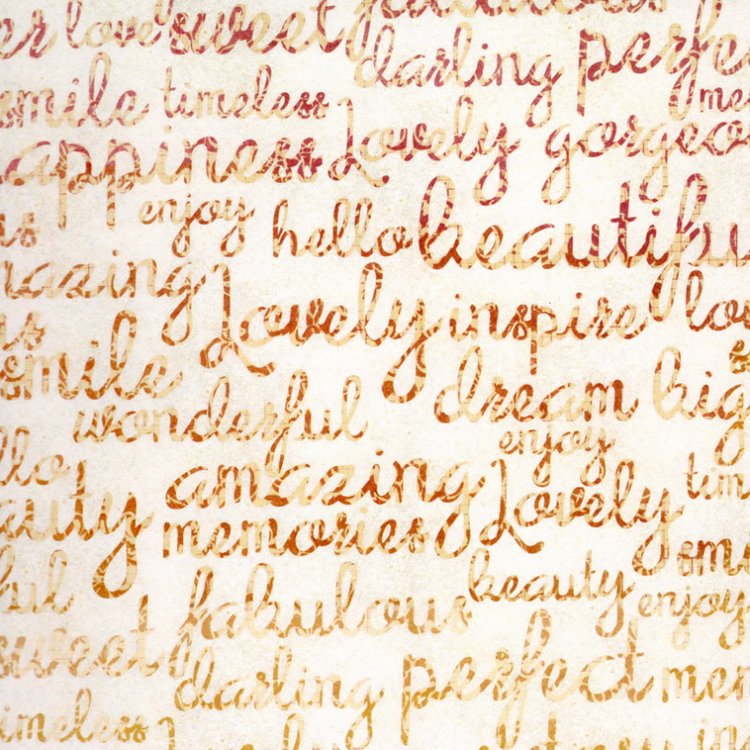 love sweet fabulous
darling perfe
smile timeless me
happiness Lovely gorgeo
enjoy
hello beautifu
mazing
Lovely inspire lo
smile
dream big
wonderful
enjoy
llo
amazing Lovely tim
auty
memories smi
ful beauty
fabulous enjoy
sweet
darling perfect mem
timeless